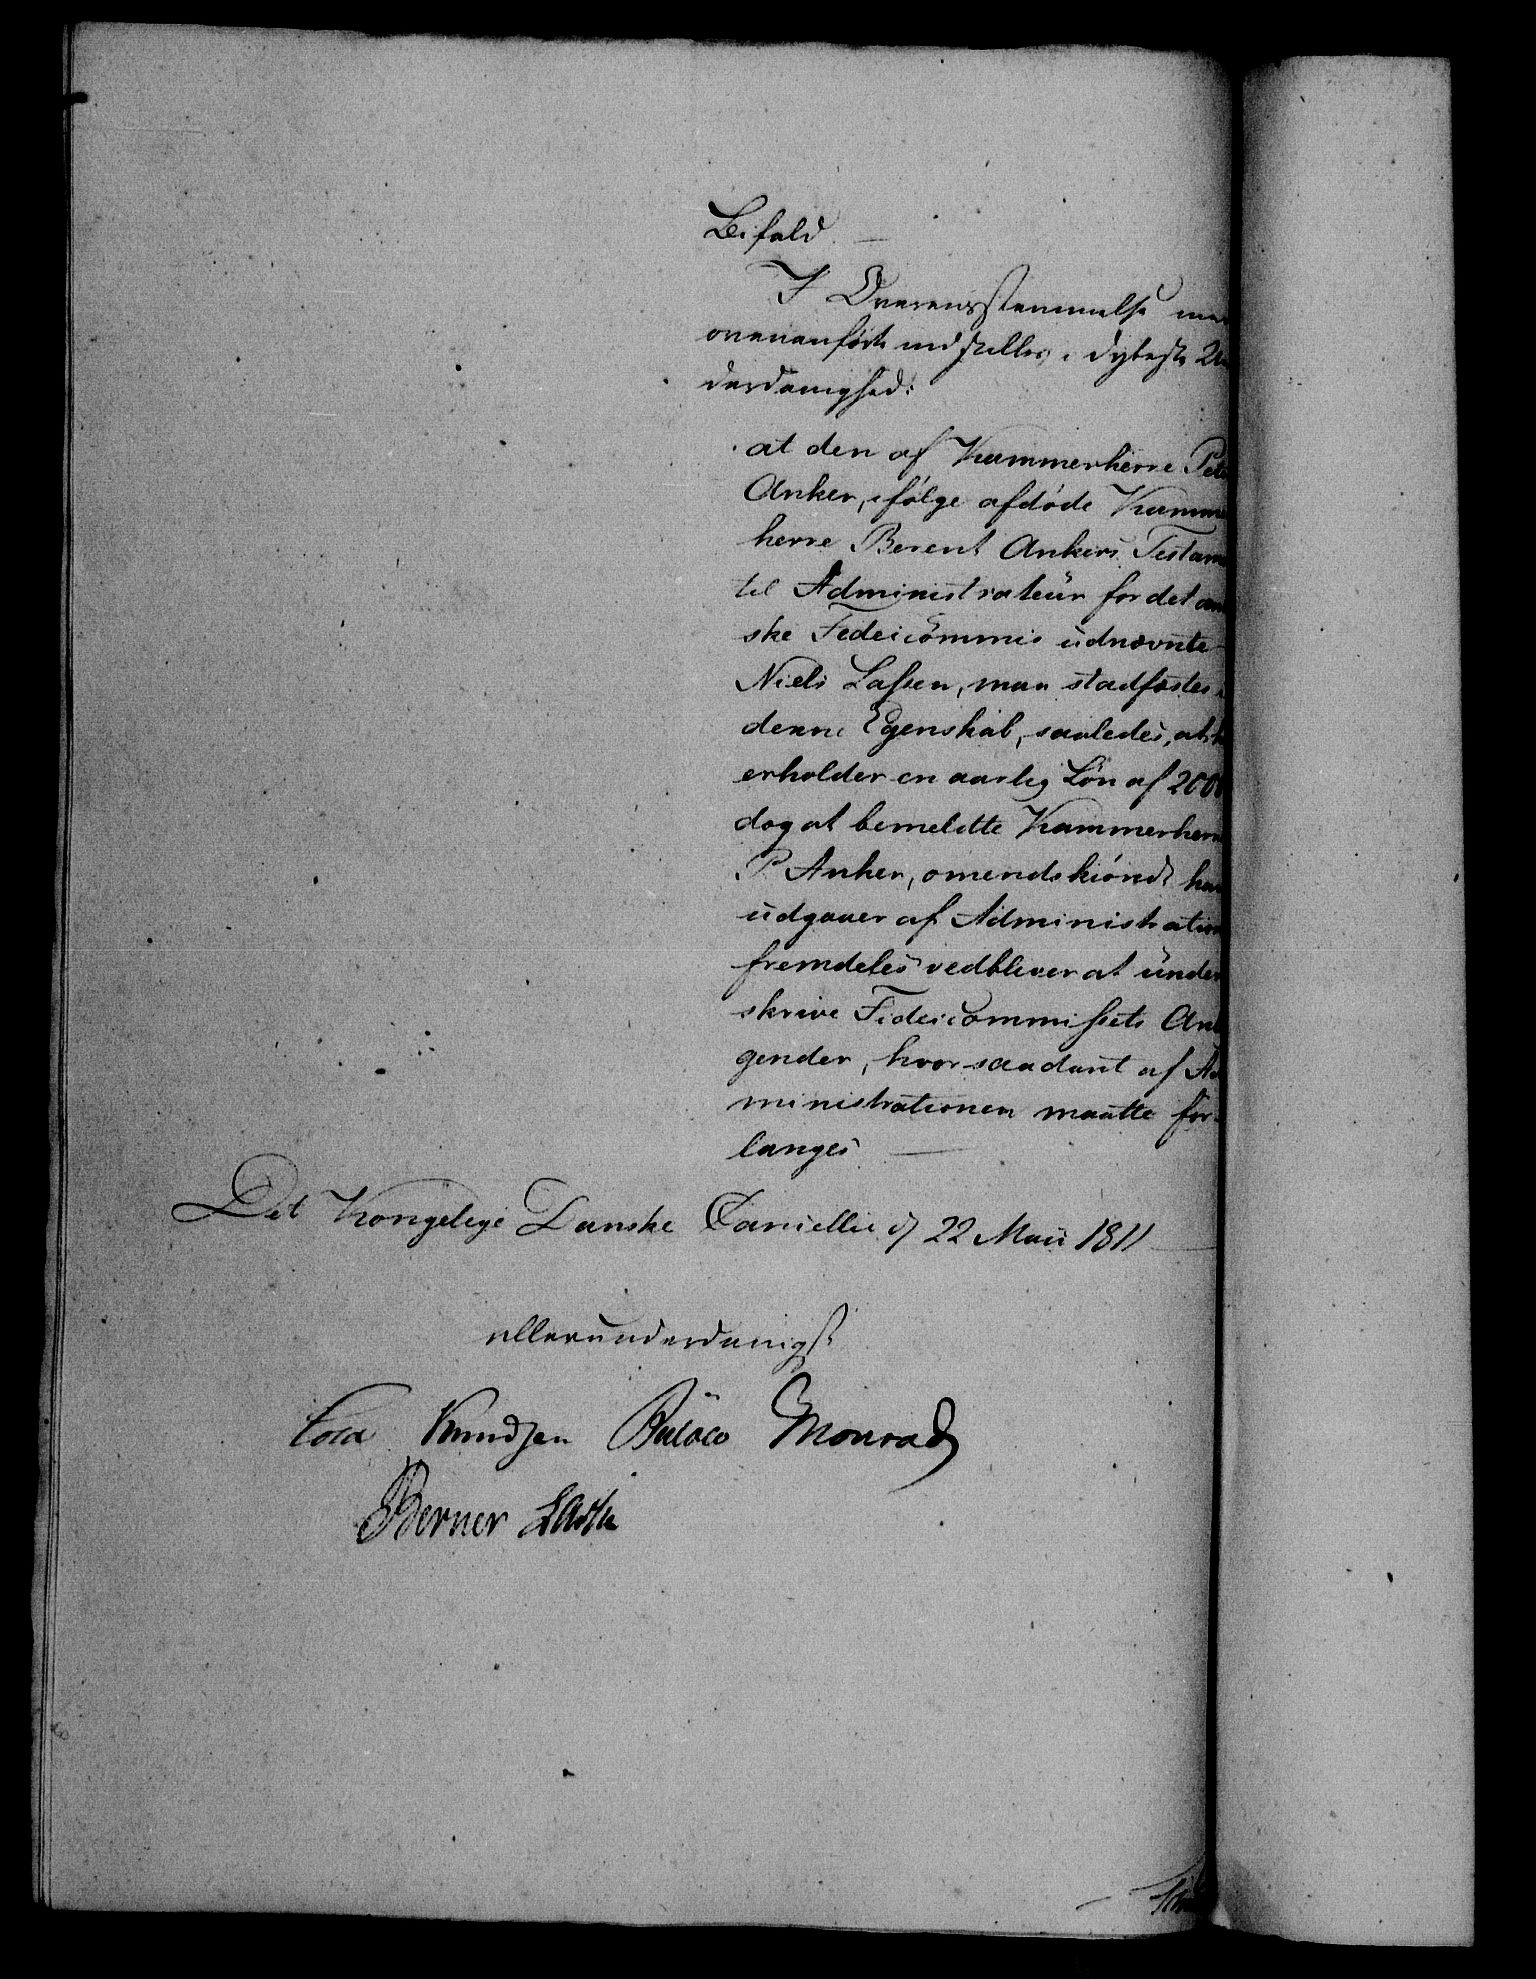 Bifald. —
I Overensstemmelse med
ovenanførte indstilles, i dybeste Un
derdanighed:
at den af Kammerherre Pete
Anker, ifølge afdøde Kamme
herre Berent Ankers Testame
til Administrateur for det an
ske Fedeicommis udnævnte
Niels Lassen, maa stadfæstes i
denne Egenskab, saaledes, at h
erholder en aarlig Løn af 2000
dog at bemeldte Kammerherre
P Anker, omendskiøndt han
udgaaer af Administration
fremdeles vedbliver at under
skrive Fideicommissets An
gender, hvor saadant af Ad
ministrationen maatte for-
langes —
Det Kongelige Danske Cancellie d 22 Maii 1811 —
allerunderdanigst
Cold Knudsen Bülow Monrad
Berner Lassen